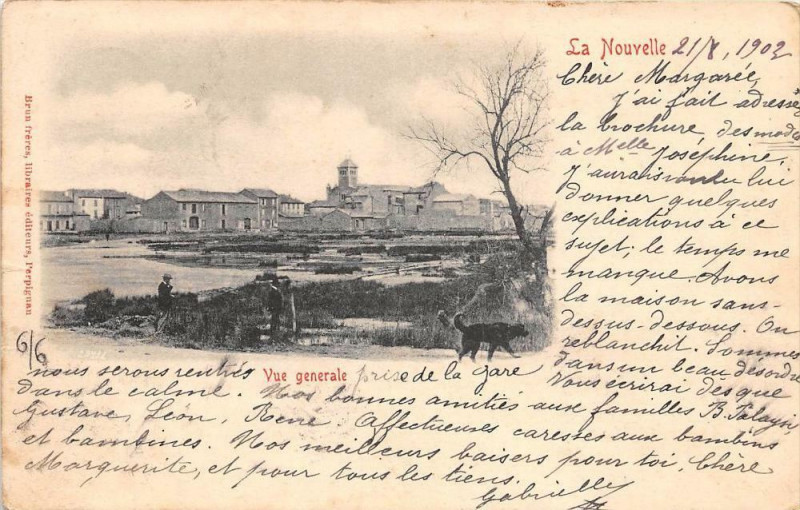 La Nouvelle 21/8, 1902
Chère Margarée,
J'ai fait adressée
la brochure des mode
à Melle Joséphine.
J'aurais voulu lui
donner quelques
explications à ce
sujet; le temps me
manque. Avons
la maison sans-
dessus-dessous. On
reblanchit. Sommes
dans un beau désordre
Vous écrirai des que
nous serons rentrés
dans le calme. Nos bonnes amitiés aux familles B.
Gustave, Léon, René. Affectueuses caresses aux bambins
et bambines. Nos meilleurs baisers pour toi, Chère
Marguerite, et pour tous les tiens.
Gabrielle
Vue generale prise de la gare
6/6
Brun frères, libraires éditeurs, Perpignan